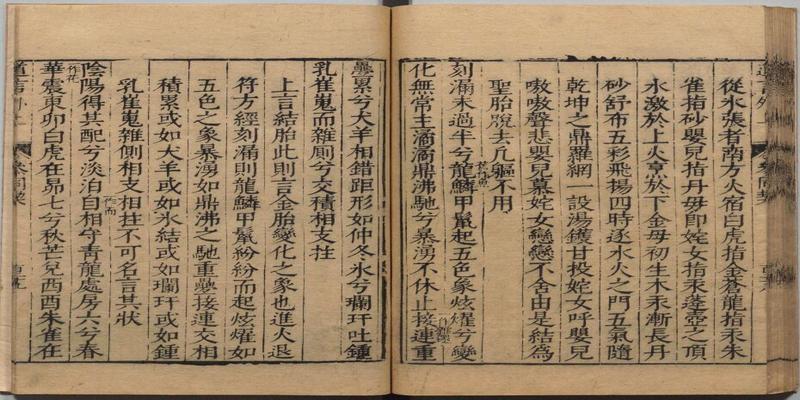 從氷張者南方火宿白虎指金蒼龍指汞朱
雀指砂嬰兒指丹毋即姹女指汞蓬壺之頂
水激於上火烹於下金母初生木汞漸長丹
砂舒布五彩飛揚四時逐水火之門五氣隨
乾坤之鼎羅網一設湯鑊甘投姹女呼嬰兒
嗷嗷聲悲嬰兒慕姹女戀戀不舍由是結爲
聖胎脫去凡軀不用
刻漏未過半兮龍鱗甲鬣起五色象炫燿兮變
化無常主滴滴鼎沸馳兮暴湧不休止接連重
疊累兮犬羊相錯距形如仲冬氷兮瓓玕吐鍾
乳崔嵬而雜厠兮交積相支拄
上言結胎此則言金胎變化之象也進火退
符方經刻漏則龍鱗甲鬣紛紛而起炫燿如
五色之象暴湧如鼎沸之馳重疊接連交相
積累或如犬羊或如氷結或如瓓玕或如鍾
乳崔嵬雜側相支相拄不可名言其狀
陰陽得其配兮淡泊自相守青龍處房六兮春
華震東卯白虎在昴七兮秋芒兌西酉朱雀在